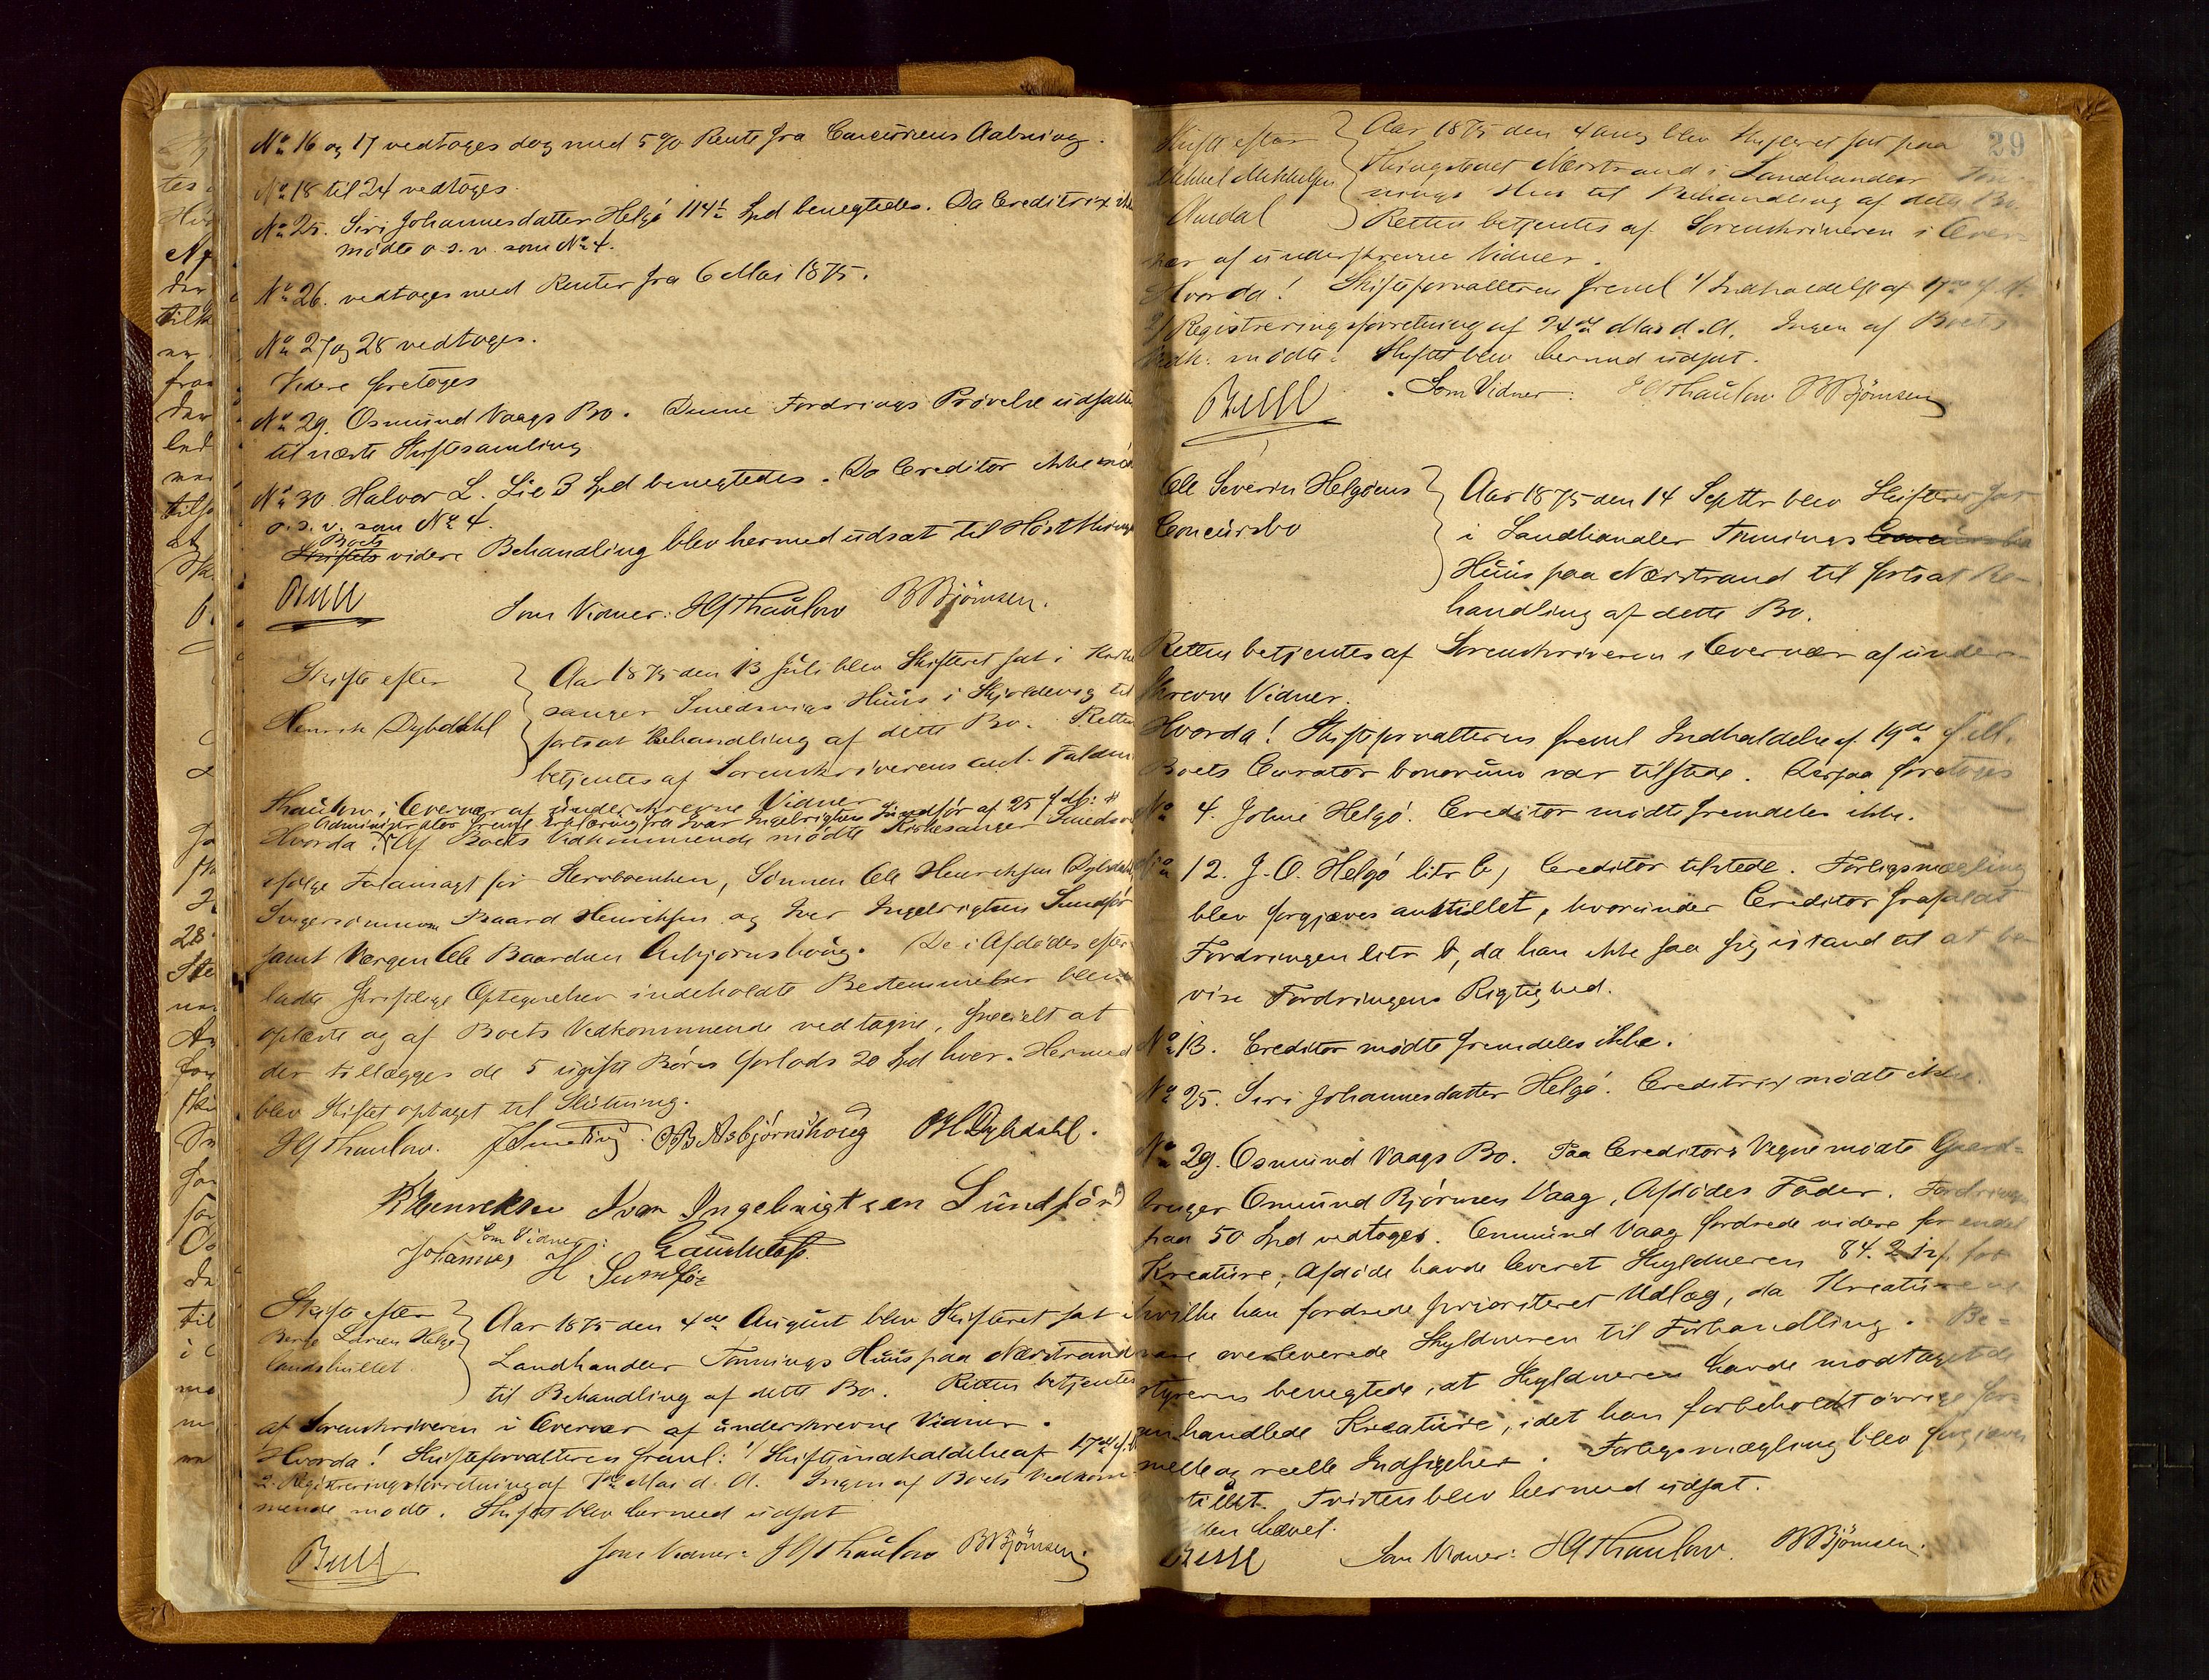 No 16 og 17 vedtoges dog med 5 % Rente fra Concursens Aabning.
No 18 til 24 vedtoges.
No 25. Siri Johannesdatter Helgö 114 Spd benegtedes. Da Creditrix ikke
mödte o. s. v. som No 4.
No 26. vedtoges med Renter fra 6 Mai 1875.
No 27 og 28 vedtoges.
Videre foretoges
No 29. Osmund Vaags Bo. Denne Fordrings Prövelse udsattes
til næste Skiftesamling
No 30 Halvor L. Lie 3 Spd benegtedes. Da Creditor ikke
o. s. v. som No 4.
Boets
Skiftets videre Behandling blev hermed udsat til Hóstthinget
Bull
Som Vidner: HJThaulow BBjörnsen.
Skifte efter
Henrik Dybdahl
Aar 1875 den 13 Juli blev Skifteret sat i Kirke
sanger Smedsvigs Huus i Skjoldevig til
fortsat Behandling af dette Bo. Retten
betjentes af Sorenskriverens aut. Fuldm
Thaulow, i Overvær af underskrevne Vidner
Administrator freml Erklæring fra Ivar Ingebrigtsen Sundför af 25 f. M.
Hvorda! Af Boets Vedkommende mödte Kirkesanger Smedsvig
ifölge Fuldmagt for Stervboenken, Sönnen Ole Henriksen Dybdahl
Svigersönnerne Baard Henriksen og Iver Ingebrigtsen Sundför
samt Værgen Ole Baardsen Asbjornshoug. De i Afdödes efter
ladte skriftlige Optegnelser indeholdte Bestemmelser blev
oplæste og af Boets Vedkommende vedtagne, specielt at
der tillægges de 5 ugifte Börn forlods 20 Spd hver. Hermed
blev Skiftet optaget til Slutning.
HJThaulow. JSmedsvig OBAsbjörnshoug OHDybdahl.
BHenriksen Ivar Ingebrigtsen Sundför
Som Vidner:
Johannes H Sundför
Skifte efter
Berge Larsen Helge
landshullet.
Aar 1875 den 4de August blev Skifteret sat i
Landhandler Tönnings Huus paa Nærstrand
til Behandling af dette Bo. Retten betjentes
af Sorenskriveren i Overvær af underskrevne Vidner.
Hvorda! Skifteforvalteren freml: 1/ Skifteindkaldelse af 17de f. M.
2. Registreringsforretning af Mai d. A. Ingen af Boets Vedkom-
mende mödte. Skiftet blev hermed udsat
Bull
Som Vidner: HJThaulow BBjörnsen.
29
Skifte efter
Mikkel Mikkelsen
Aar 1875 den 4 Aug blev Skifteret sat paa
Thingstedet Nærstrand i Landhandler Tön
nings Hus til Behandling af dette Bo.
Retten betjentes af Sorenskriveren i Over-
vær af underskrevne Vidner.
Hvorda! Skifteforvalteren freml 1/ Indkaldelse af 17de f. M.
2/ Registreringsforretning af 24de Mai d. A. Ingen af Boets
Vedk. mödte. Skiftet blev hermed udsat.
Bull
Som Vidner: HJThaulow BBjörnsen
Ole Severin Helgöens
Concursbo
Aar 1875 den 14 Septbr blev Skifteret sat
i Landhandler Tönnings Concursbo
Huus paa Nærstrand til fortsat Be-
handling af dette Bo.
Retten betjentes af Sorenskriveren i Overvær af under-
skrevne Vidner.
Hvorda! Skifteforvalteren freml Indkaldelse af 19de f. M.
Boets Curator bonorum var tilstede. Derpaa foretoges
No 4. Johne Helgö. Creditor mödte fremdeles ikke.
No 12. J. O. Helgö litr b, Creditor tilstede. Forligsmægling
blev forgjæves anstillet, hvorunder Creditor frafaldt
Fordringen litr b, da han ikke saa sig istand til at be
vise Fordringens Rigtighed.
No 13. Creditor mödte fremdeles ikke.
No 25. Siri Johannesdatter Helgö. Creditrix mödte ikke.
No 29. Osmund Vaags Bo. Paa Creditors Vegne mödte Gaard-
bruger Omund Bjórnsen Vaag, Afdödes Fader. Fordringen
paa 50 Spd vedtoges. Omund Vaag fordrede videre for endel
Kreature, Afdöde havde leveret Skyldneren 84. 2. for
hvilke han fordrede prioriteret Udlæg, da Kreaturene
vare overleverede Skyldneren til Forhandling. Be-
styreren benegtede, at Skyldneren havde modtaget de
omhandlede Kreature, idet han forbeholdt övrige for-
melle og reelle Indsigelser. Forligsmægling blev forgjæves
stillet. Tvisten blev hermed udsat.
den hævet.
Bull
Som Vidner: HJThaulow. BBjörnsen.